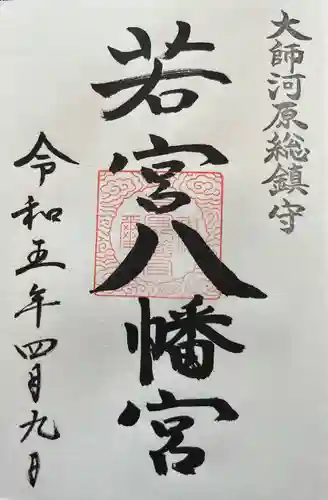 大師河原総鎮守
若宮八幡宮
令和五年四月九日